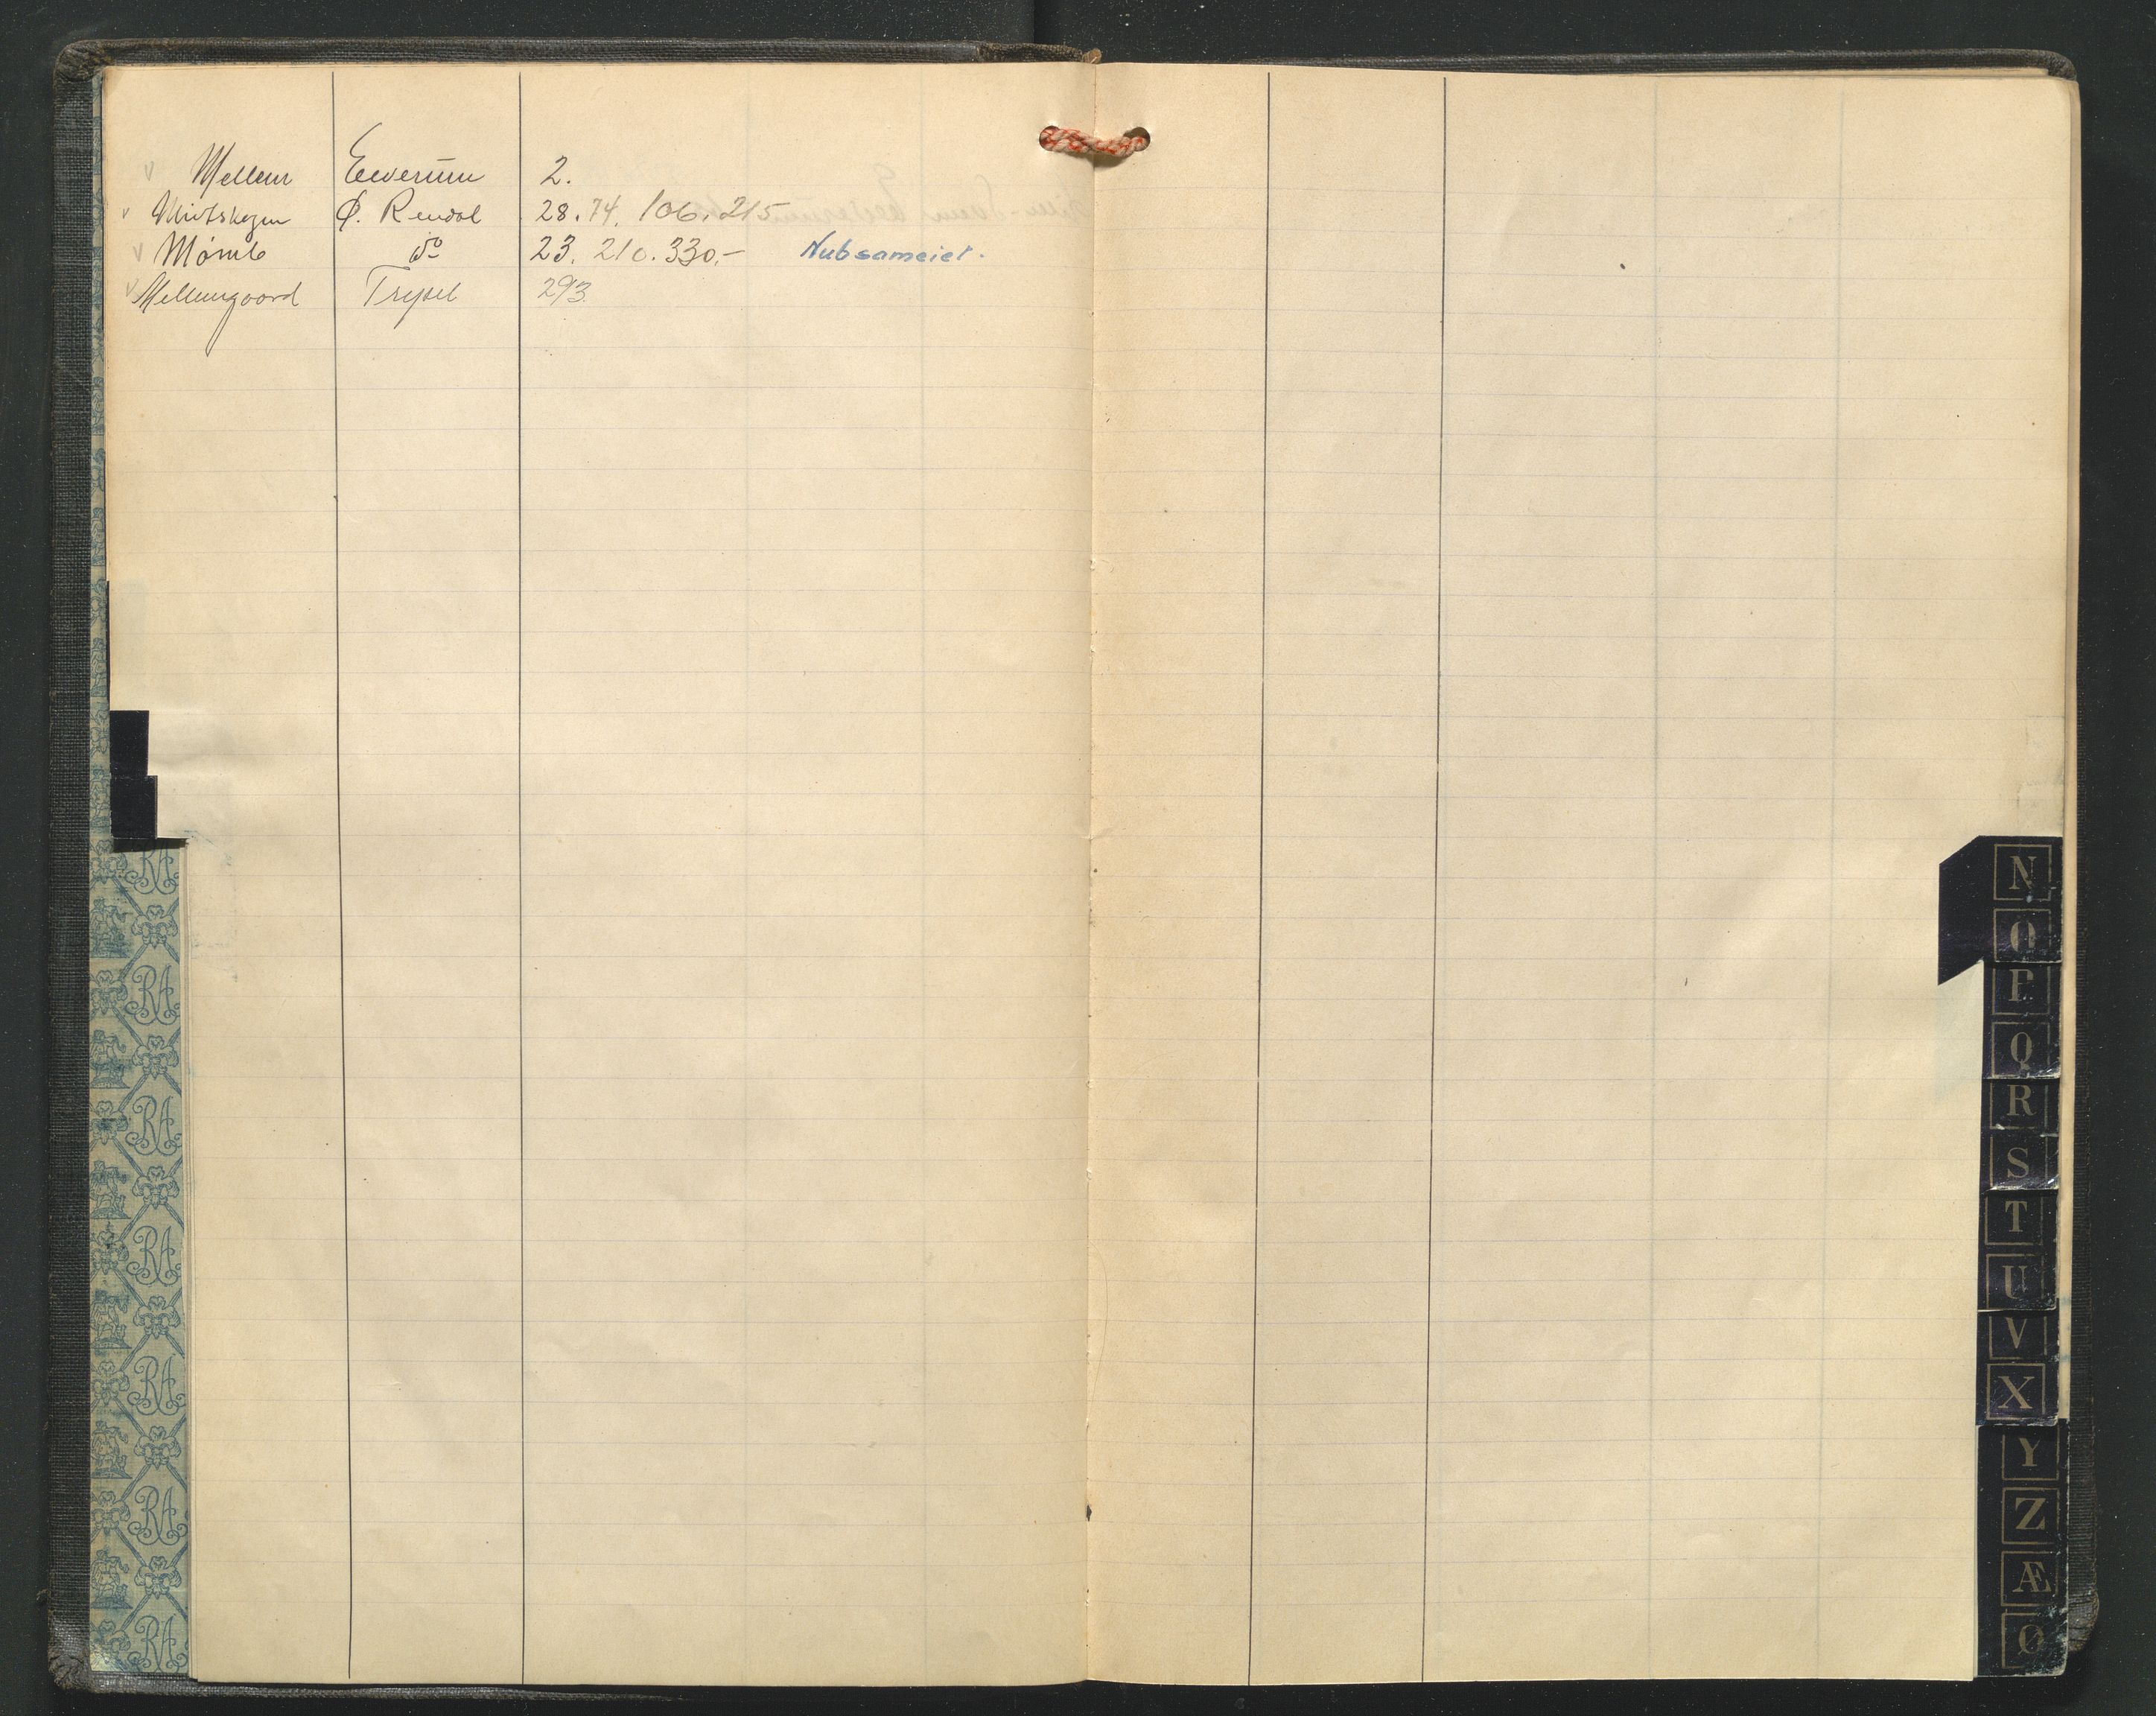 v Mellem Elverum 2.
v Midtskogen Ø. Rendal 28. 74. 106. 215
v Mømb do 23. 210. 330.- Nubsameiet.
v Mellemgaard Trysil 293.
N
O
P
Q
R
S
T
U
V
X
Y
Z
Æ
Ø